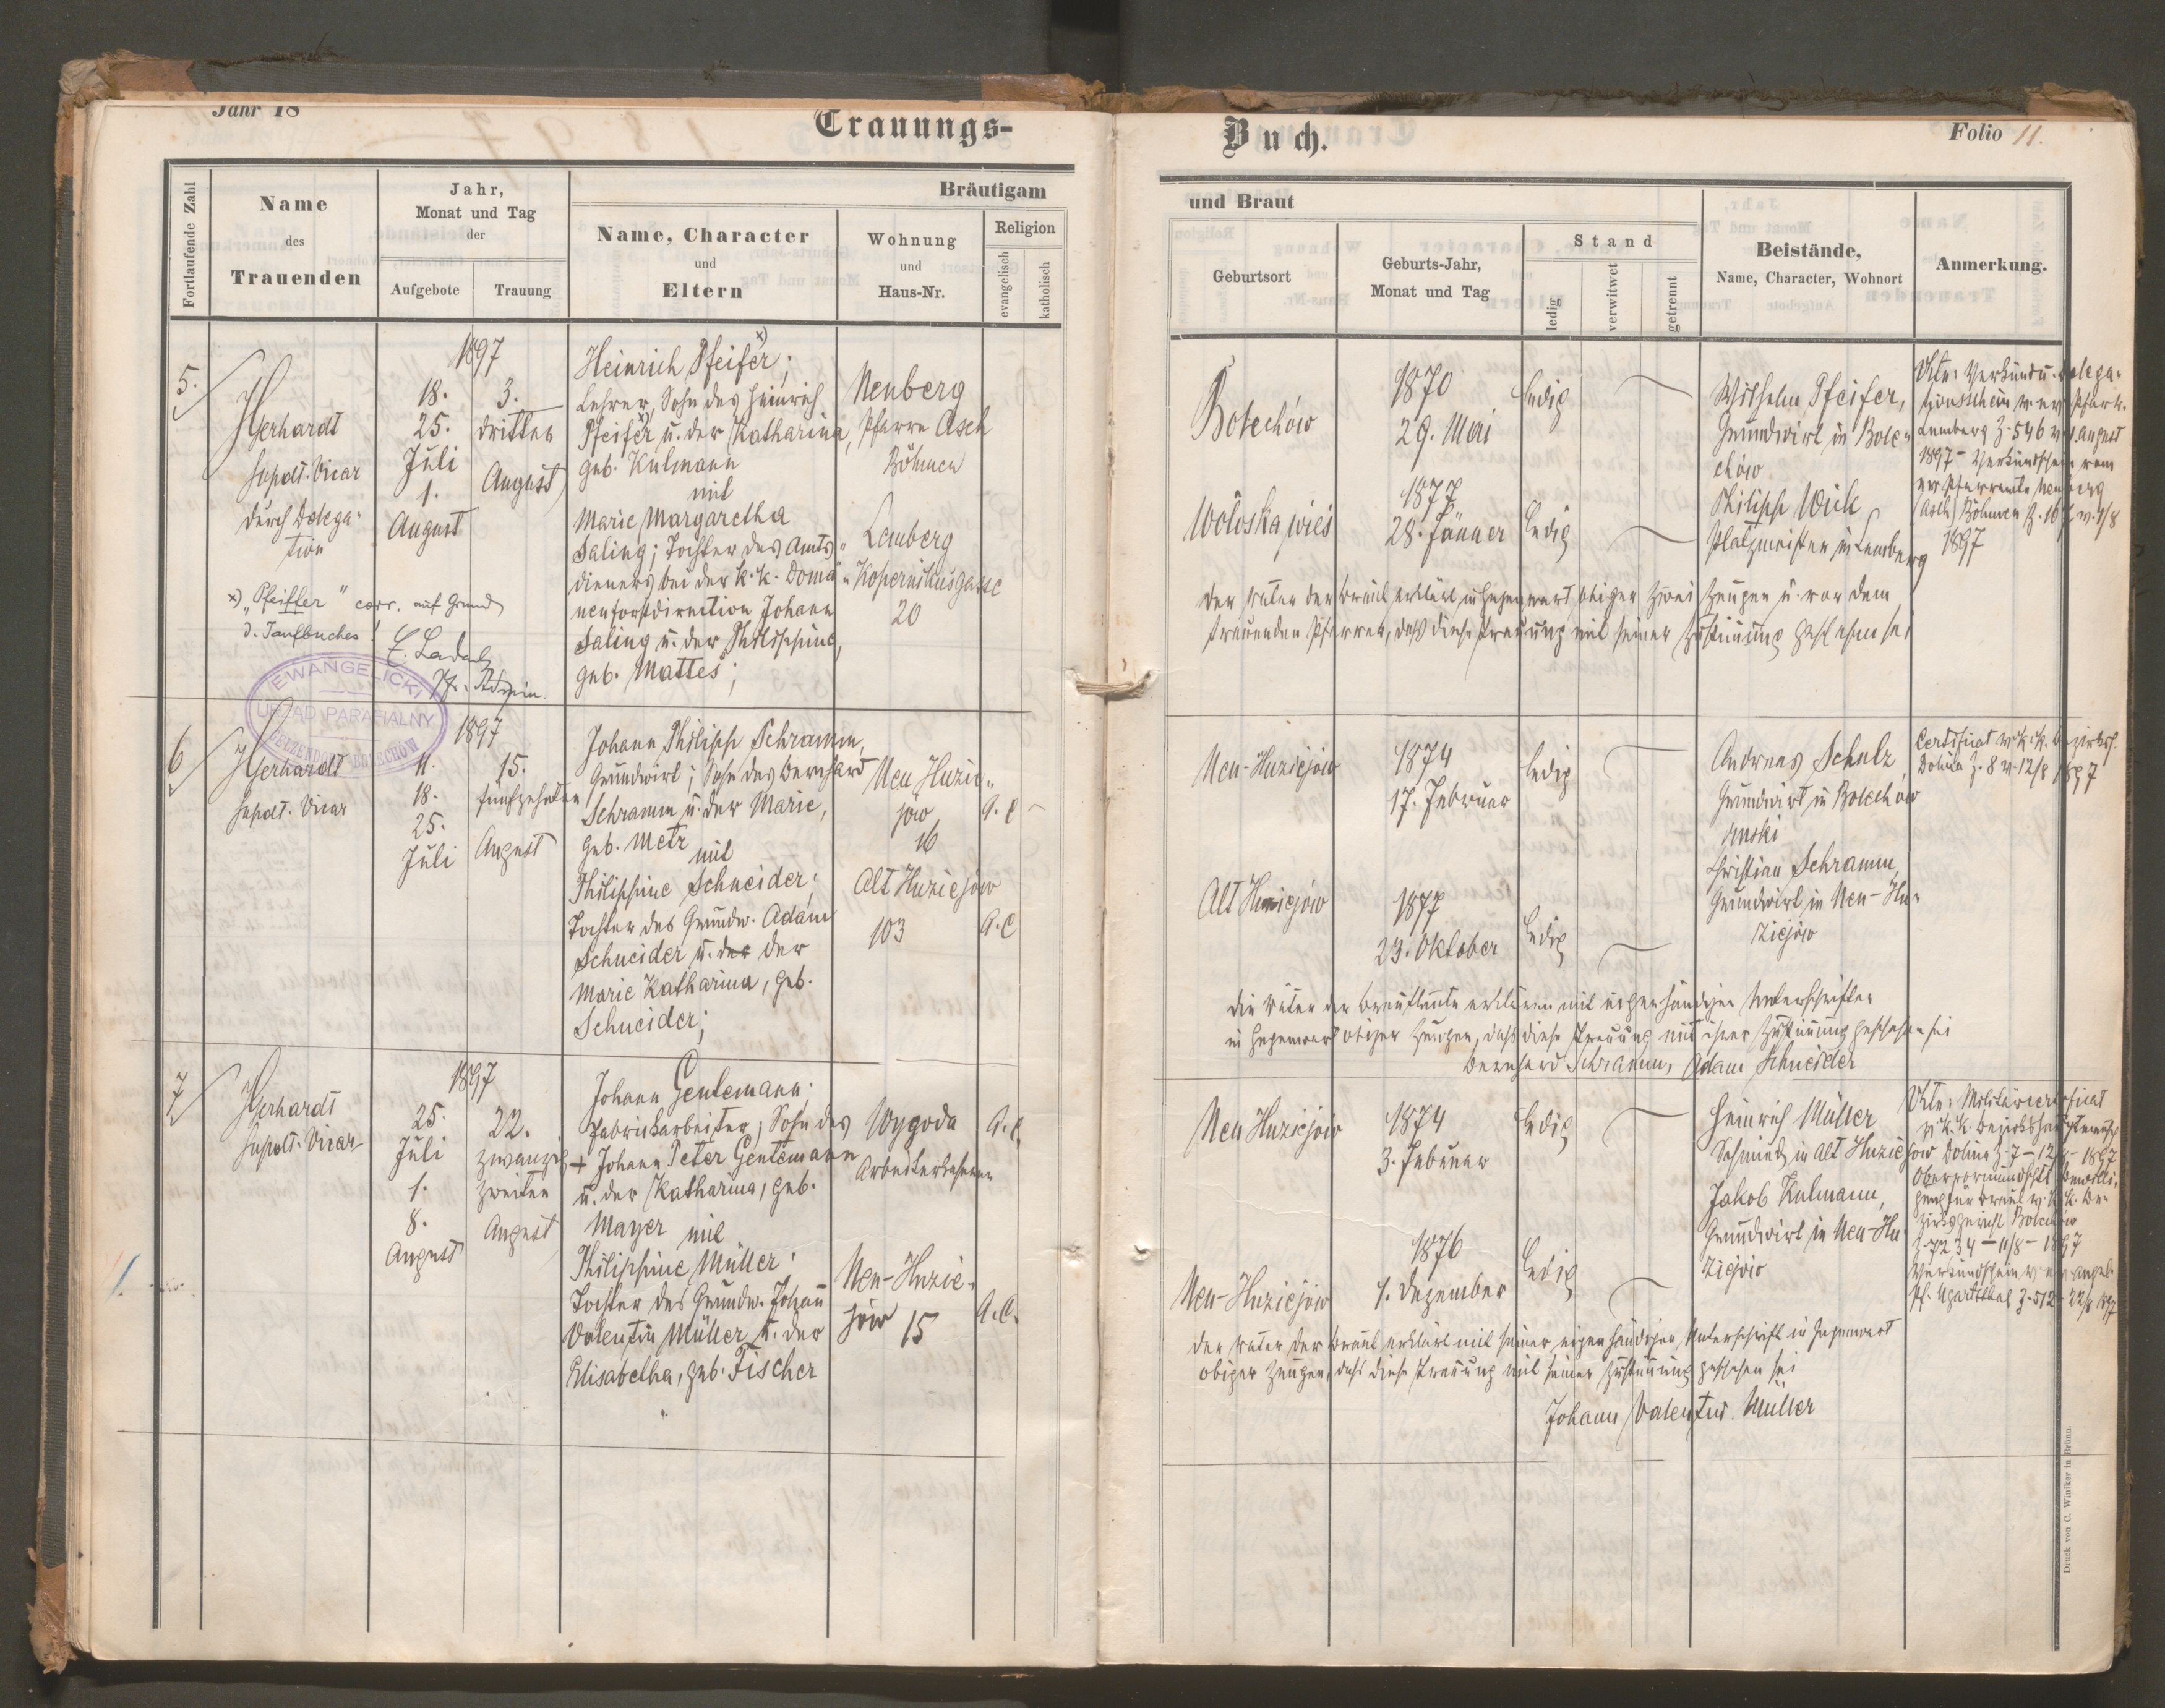 Jahr 18
Trauungs-
Fortlaufende Zahl
Name
des
Trauenden
Jahr,
Monat und Tag
der
Aufgebote
Trauung
Bräutigam
Name, Character
und
Eltern
Wohnung
und
Haus-Nr.
Religion
evangelisch
katholisch
5.
Gerhardt
Supdt. Vicar
durch Delega-
tion
x) "Pfeiffer" corr. auf Grund
d. Taufbuches!
Pf. Admin.
EWANGELICKI
URZĄD PARAFIALNY
1897
18.
25.
Juli
1.
August
3.
dritter
August
Heinrich Pfeifer x);
Lehrer, Sohn des Heinrich
Pfeifer x) u. der Katharina,
geb. Kulmann
mit
Marie Margaretha
Saling; Tochter des Amts-
dieners bei der k. k. Domä-
nenforstdirection Johann
Saling u. der Philippine,
geb. Mattes;
Neuberg
Pfarre Asch
Böhmen
Lemberg
Kopernikusgasse
20
6
Gerhardt
Supdt. Vicar
1897
11.
18.
25.
Juli
15.
fünfzehnten
August
Johann Philipp Schramm,
Grundwirt; Sohn des Bernhard
Schramm u. der Marie,
geb. Metz
mit
Philippine Schneider;
Tochter des Grundw. Adam
Schneider u. der der
Marie Katharina, geb.
Schneider;
Neu Huzie-
jów
16
A. C
Alt Huziejów
103
A. C
7
Gerhardt
Supdt. Vicar
1897
25.
Juli
1.
8.
August
22.
zwanzig
zweiten
August
Johann Gentemann;
Fabriksarbeiter; Sohn des
+ Johann Peter Gentemann
u. der Katharina, geb.
Mayer mit
Philippine Müller;
Tochter des Grundw. Johann
Valentin Müller u. der
Elisabetha, geb. Fischer
Wygoda
A. C.
Neu-Huzie-
jów 15
A. C.
Buch.
Folio 11.
und Braut
Geburtsort
Geburts-Jahr,
Monat und Tag
Stand
ledig
verwitwet
getrennt
Beistände,
Name, Character, Wohnort
Anmerkung.
Bolechów
1870
29. Mai
ledig
Wilhelm Pfeifer,
Grundwirt in Bole-
chów
Wołoska wieś
1877
28. Jänner
ledig
Philipp Wick
Platzmeister in Lemberg
Lemberg Z. 546 v. 1. August
1897 - Verkündschein vom
ev. Pfarramte Neuberg
(Asch) Böhmen
1897
Der Vater der Braut erklärt in Gegenwart obiger zwei Zeugen u. vor dem
trauenden Pfarrer, daß diese Trauung mit seiner Zustimmung geschehen sei
Neu-Huziejów
1874
17. Februar
ledig
Andreas Schulz,
Grundwirt in Bolechów
ruski
Certificat v. k. k. Bezirksh.
Dolina Z. 8 v. 12/8 1897
Alt Huziejów
1877
23. Oktober
ledig
Christian Schramm,
Grundwirt in Neu-Hu-
ziejów
Die Väter der Brautleute erklären mit eigenhändigen Unterschriften
in Gegenwart obiger Zeugen, daß diese Trauung mit ihrer Zustimmung geschehen sei
Bernhard Schramm, Adam Schneider
Neu Huziejów
1874
3. Februar
ledig
Heinrich Müller
Schmied in Alt Huziejów
Jakob Kulmann,
Grundwirt in Neu-Hu-
ziejów
Neu-Huziejów
1876
1. Dezember
ledig
Dolina Z. 7 - 12/8 1897
zirksgericht Bolechów
Z. 7234 - 11/8 - 1897
Pf. Ugartsthal Z. 512 - 22/8 1897
Der Vater der Braut erklärt mit seiner eigenhändigen Unterschrift in Gegenwart
obiger Zeugen, daß diese Trauung mit seiner Zustimmung geschehen sei
Johann Valentin Müller
Druck von C. Winiker in Brünn.